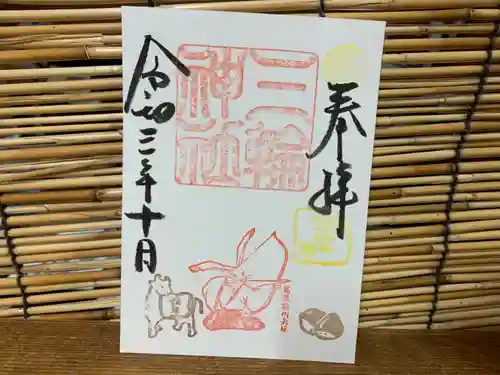 奉拝
三輪
神社
令和二年十月